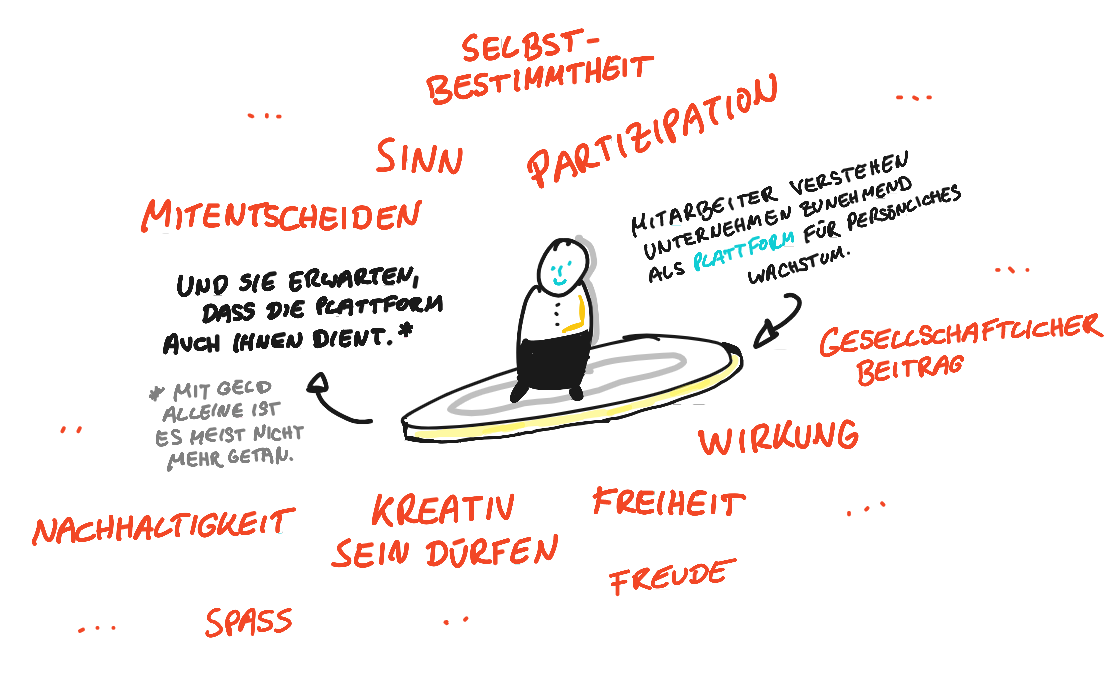 SELBST-
BESTIMMTHEIT
...
...
SINN
PARTIZIPATION
MITENTSCHEIDEN
MITARBEITER VERSTEHEN
UNTERNEHMEN ZUNEHMEND
ALS PLATTFORM FÜR PERSÖNLICHES
WACHSTUM.
UND SIE ERWARTEN,
DASS DIE PLATTFORM
AUCH IHNEN DIENT.*
...
GESELLSCHAFTLICHER
BEITRAG
* MIT GELD
ALLEINE IST
ES MEIST NICHT
MEHR GETAN.
..
WIRKUNG
NACHHALTIGKEIT
KREATIV
SEIN DÜRFEN
FREIHEIT
...
FREUDE
...
SPASS
..